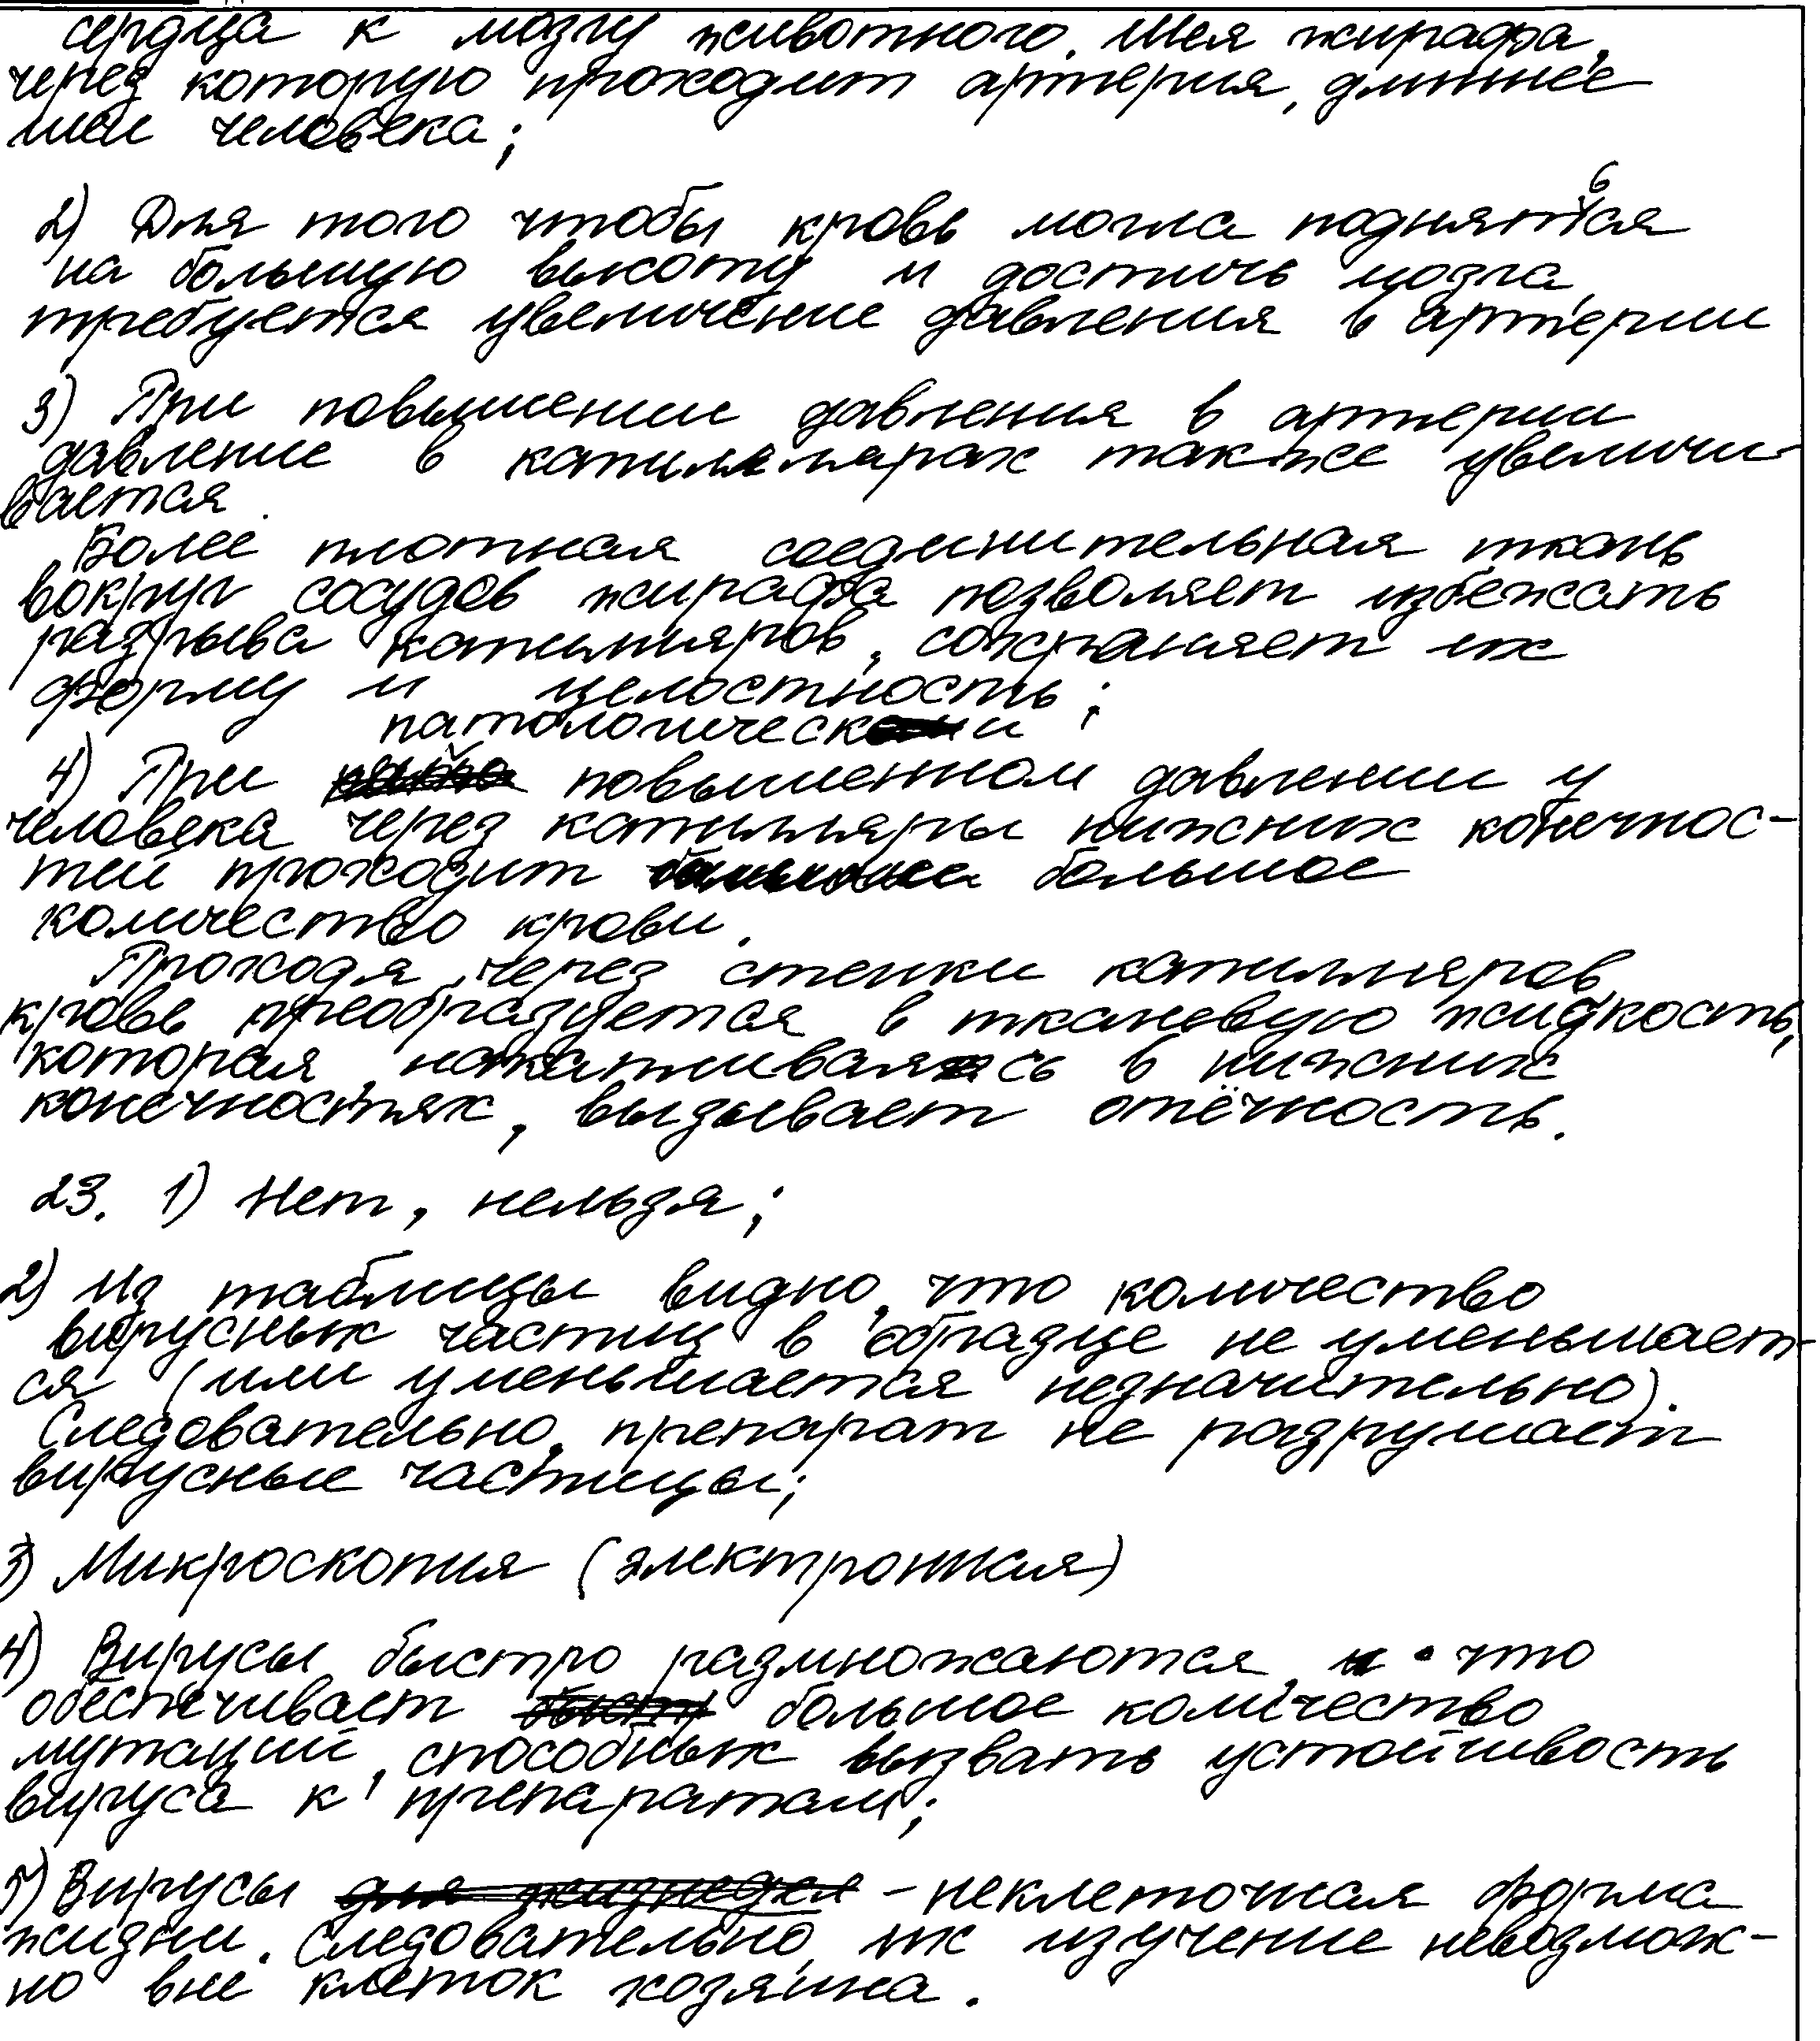 сердца к мозгу животного. Шея жирафа,
через которую проходит артерия, длиннее
шеи человека;
2) Для того чтобы кровь могла подняться
на большую высоту и достичь мозга
требуется увеличение давления в артерии
3) При повышении давления в артерии
давление в капиллярах также увеличи-
вается.
Более плотная соединительная ткань
вокруг сосудов жирафа позволяет избежать
разрыва капилляров, сохраняет их
форму и целостность;
патологически
4) При повышенном давлении у
человека через капилляры нижних конечнос-
тей проходит большое
количество крови.
Проходя через стенки капилляров,
кровь преобразуется в тканевую жидкость,
которая, накапливаясь в нижних
конечностях, вызывает отёчность.
23. 1) Нет, нельзя;
2) Из таблицы видно, что количество
вирусных частиц в образце не уменьшает-
ся (или уменьшается незначительно).
Следовательно, препарат не разрушает
вирусные частицы;
3) Микроскопия (электронная)
4) Вирусы быстро размножаются, что
обеспечивает большое количество
мутаций, способных вызвать устойчивость
вируса к препаратам;
5) Вирусы - неклеточная форма
жизни. Следовательно, их изучение невозмож-
но вне клеток хозяина.